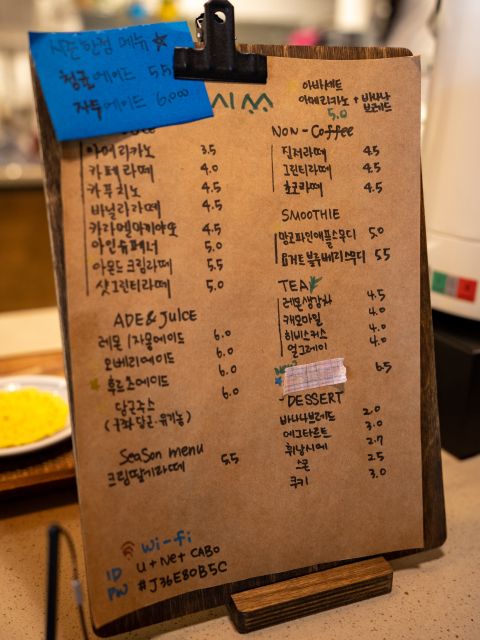 시즌한정 메뉴
청귤에이드 5.5
자두에이드 6,000
아바세트
아메리카노 + 바나나
브레드
5.0
아메리카노 3.5
카페라떼 4.0
카푸치노 4.0
바닐라라떼 4.5
카라멜마키아또 4.5
아인슈페너 5.0
아몬드크림라떼 5.5
샷그린티라떼 5.0
ADE & JUICE
레몬 / 자몽에이드 6.0
오베리에이드 6.0
후르츠에이드 6.0
당근주스 6.0
(구좌당근·유기농)
Season menu
크림딸기라떼 5.5
NON-Coffee
질저라떼 4.5
그린티라떼 4.5
초코라떼 4.5
SMOOTHIE
망고파인애플스무디 5.0
요거트블루베리스무디 5.5
TEA
레몬생강차 4.5
캐모마일 4.0
히비스커스 4.0
얼그레이 4.0
6.5
-DESSERT
바나나브레드 2.0
에그타르트 3.0
휘낭시에 2.7
스콘 2.5
쿠키 3.0
Wi-fi
ID U+Net CAB0
PW #J36E80B5C